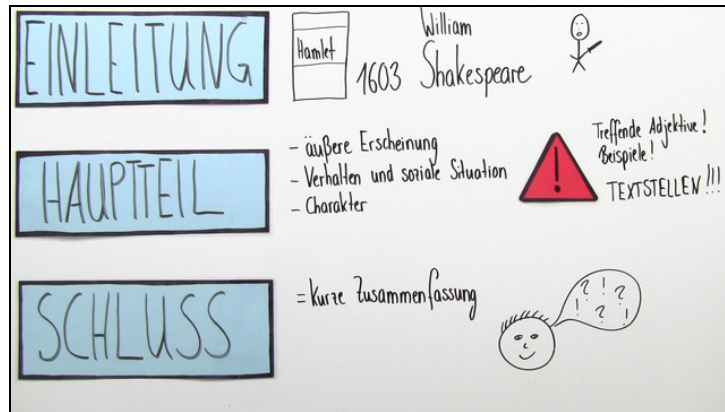 EINLEITUNG
Hamlet
1603
William
Shakespeare
HAUPTTEIL
- äußere Erscheinung
- Verhalten und soziale Situation
- Charakter
!
Treffende Adjektive!
Beispiele!
TEXTSTELLEN!!!
SCHLUSS
= Kurze Zusammenfassung
? ! ?
! ? !